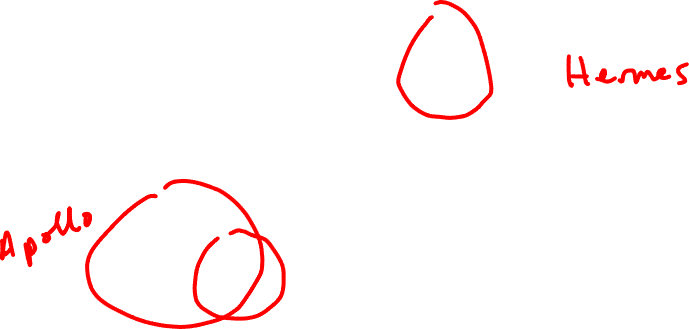 Hermes
Apollo